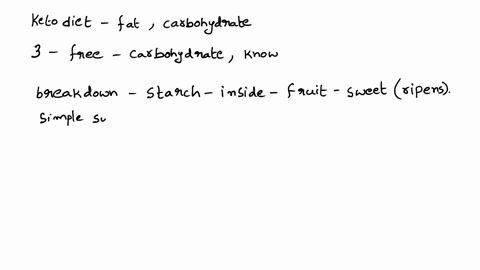 Keto diet - fat, carbohydrate
3 - free - carbohydrate, know
breakdown - starch - inside - fruit - sweet (ripens).
simple su